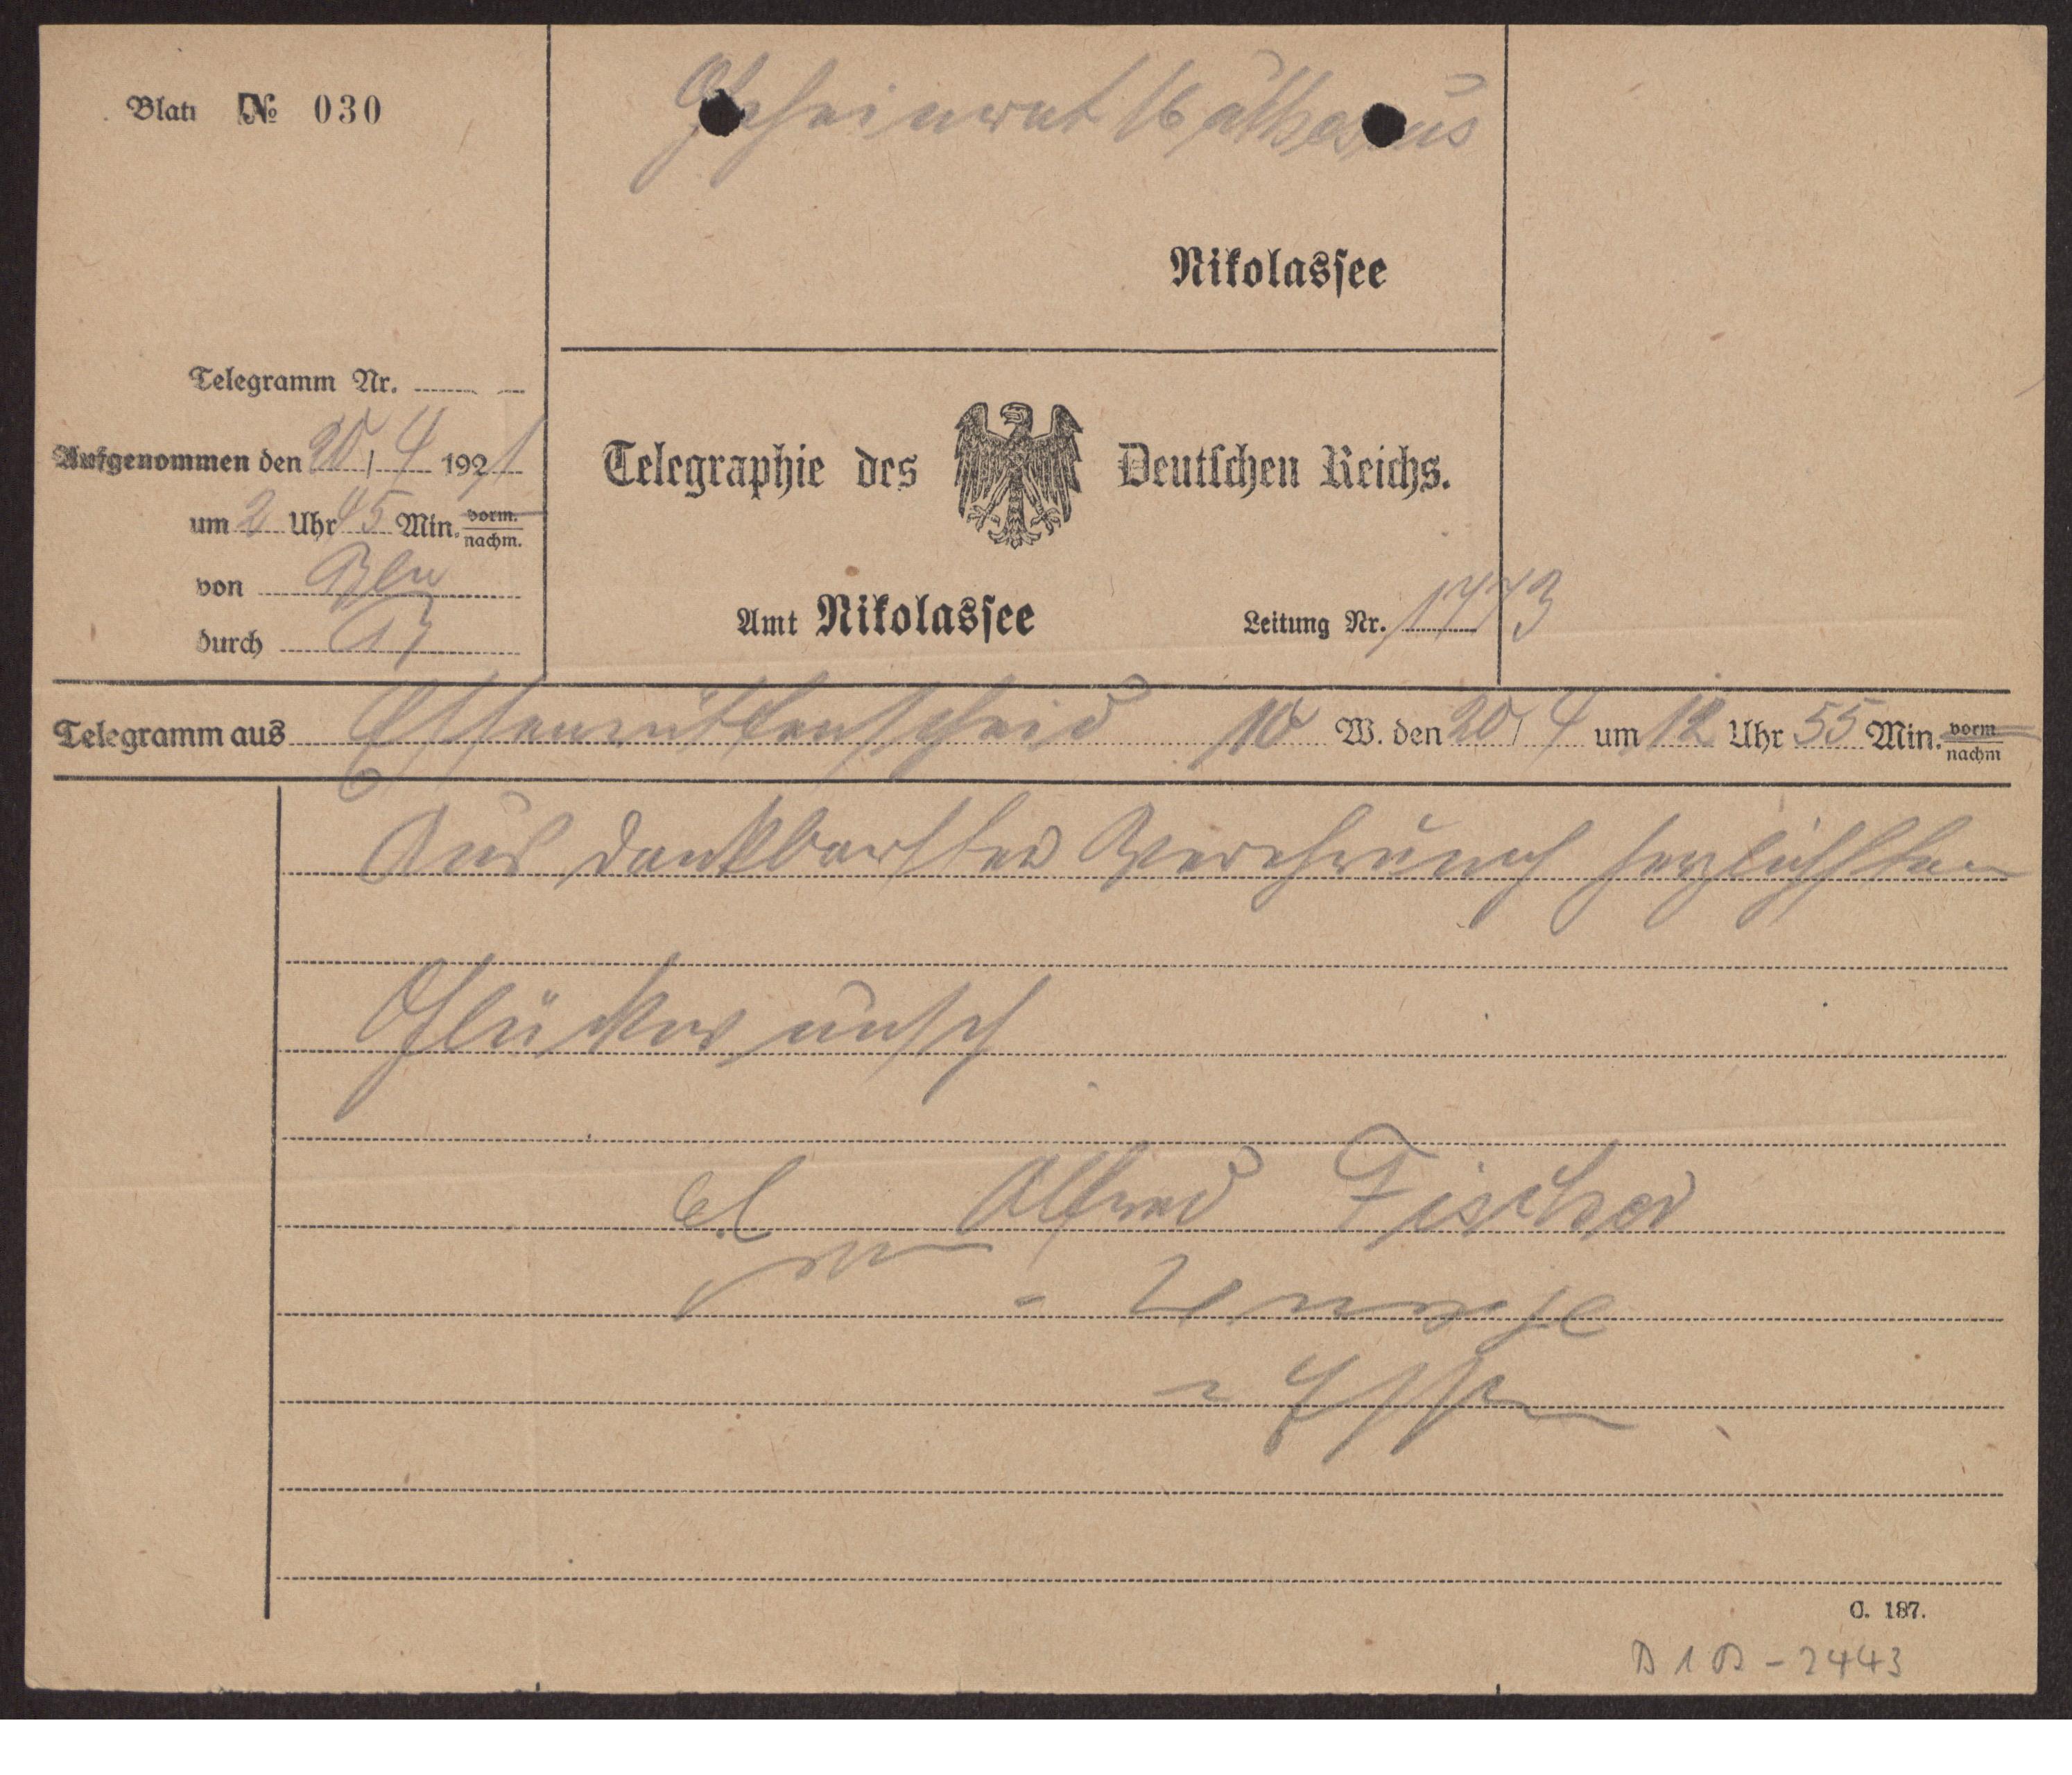 Blatt № 030
Geheimrat Muthesius
Nikolassee
Telegramm Nr.
Aufgenommen den 20/4 1921
um 2 Uhr 45 Min. vorm. nachm.
von Bln
durch
Telegraphie des Deutschen Reichs.
Amt Nikolassee Leitung Nr. 1773
Telegramm aus Essenrüttenscheid 10 W. den 20/4 um 12 Uhr 55 Min. vorm nachm
Aus dankbarster Verehrung herzlichsten
Glückwunsch
Alfred Fischer
Essen
C. 187.
D 1 D - 2443